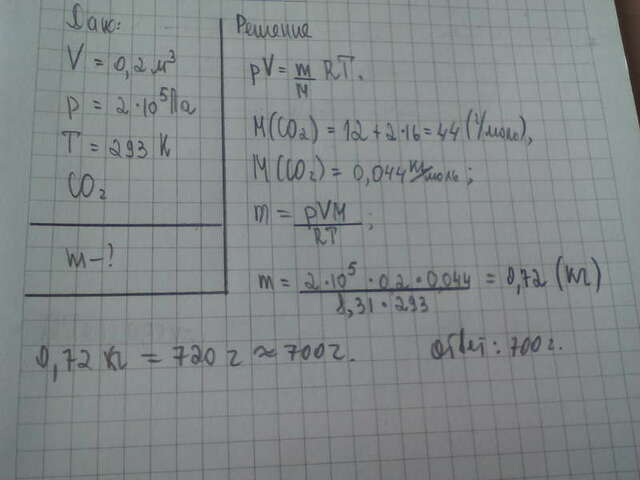 Дано:
V = 0,2 м³
p = 2·10⁵ Па
T = 293 К
CO₂
m – ?
Решение
pV = m/M RT.
M(CO₂) = 12 + 2·16 = 44 (г/моль),
M(CO₂) = 0,044 кг/моль;
m = pVM/RT;
m = 2·10⁵·0,2·0,044/8,31·293 = 0,72 (кг)
0,72 кг = 720 г ≈ 700 г.
Ответ: 700 г.